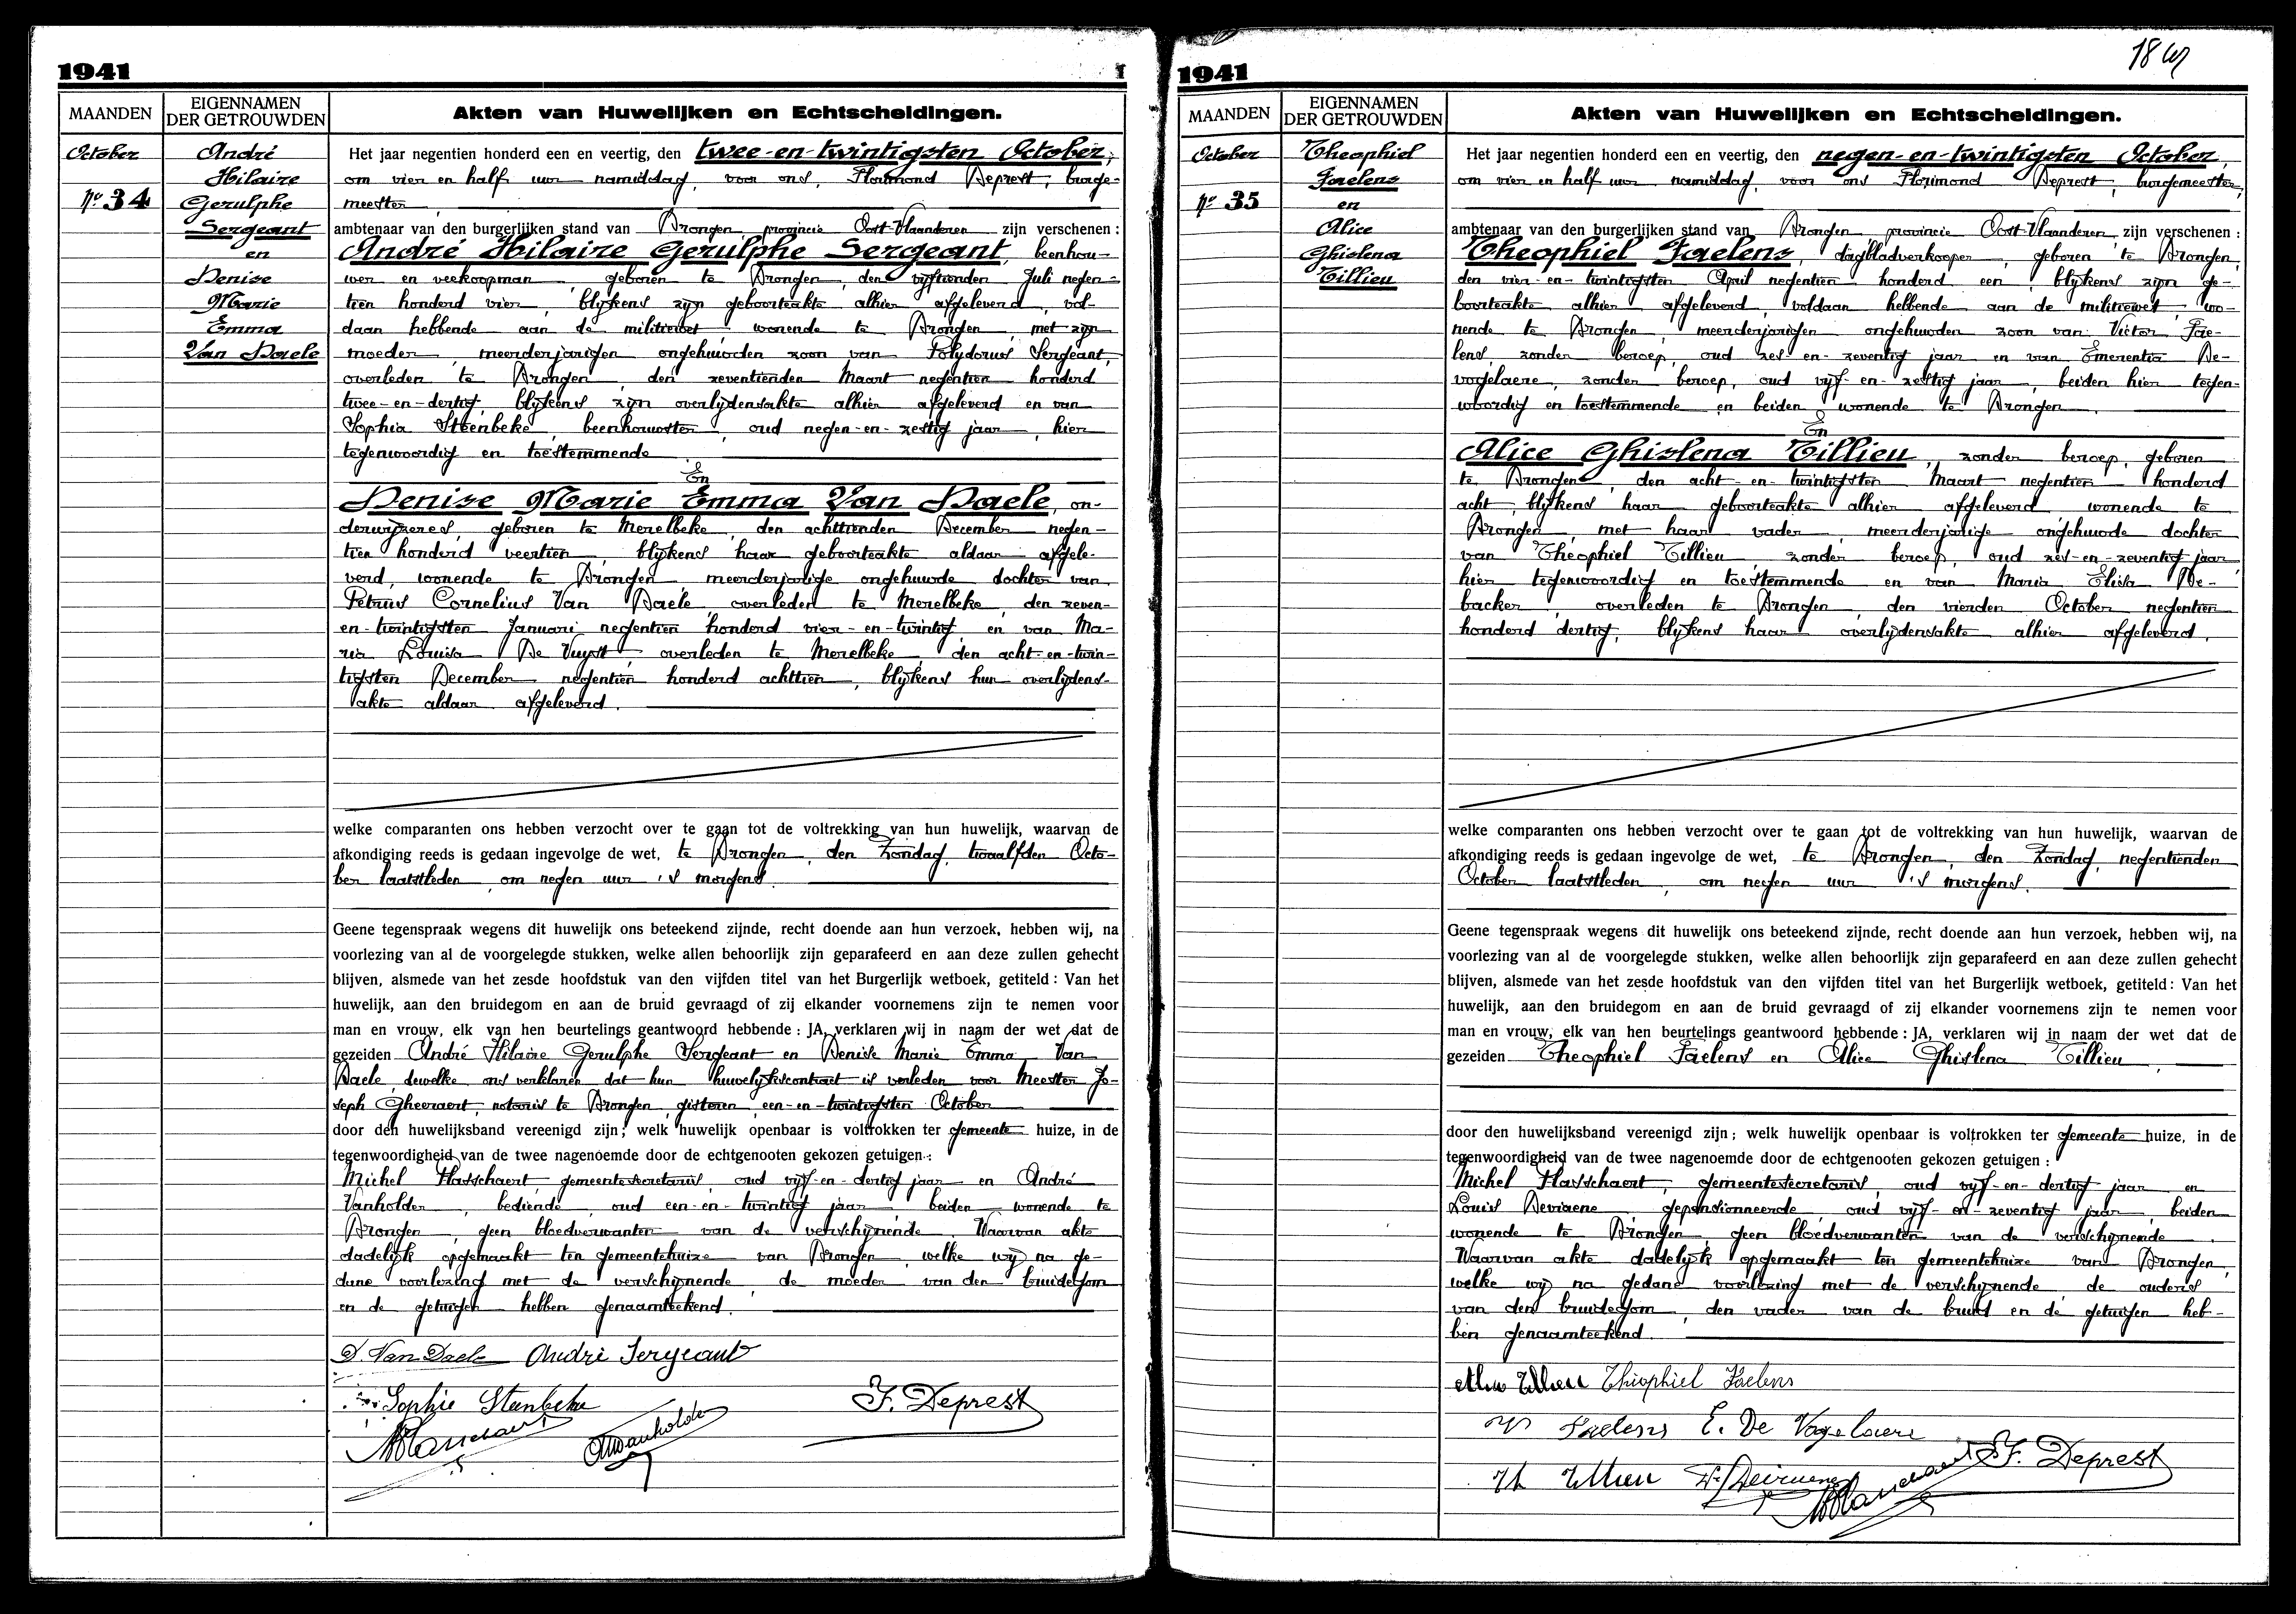 1941
MAANDEN
EIGENNAMEN
DER GETROUWDEN
Akten van Huwelijken en Echtscheidingen.
October
No 34
André
Hilaire
Gerulphe
Sergeant
en
Denise
Marie
Emma
Van Daele
Het jaar negentien honderd een en veertig, den twee-en-twintigsten October,
om vier en half uur namiddag, voor ons, Florimond Deprest, burge-
meester
ambtenaar van den burgerlijken stand van Drongen, provincie Oost-Vlaanderen zijn verschenen :
André Hilaire Gerulphe Sergeant, beenhou-
wer en veekoopman, geboren te Drongen, den vijftienden Juli negen-
tien honderd vier, blijkens zijn geboorteakte alhier afgeleverd, vol-
daan hebbende aan de militiewet wonende te Drongen, met zijn
moeder, meerderjarigen ongehuwden zoon van Polydorus Sergeant,
overleden te Drongen, den zeventienden Maart negentien honderd
twee-en-dertig, blijkens zijn overlijdensakte alhier afgeleverd en van
Sophia Steenbeke, beenhouwster, oud negen-en-zestig jaar, hier
tegenwoordig en toestemmende
En
Denise Marie Emma Van Daele, on-
derwijzeres, geboren te Merelbeke, den achttienden December negen-
tien honderd veertien, blijkens haar geboorteakte aldaar afgele-
verd, wonende te Drongen meerderjarige ongehuwde dochter van
Petrus Cornelius Van Daele, overleden te Merelbeke, den zeven-
en-twintigsten Januari negentien honderd vier-en-twintig en van Ma-
ria Louisa De Vuyst, overleden te Merelbeke, den acht-en-twin-
tigsten December negentien honderd achttien, blijkens hun overlijdens-
akte aldaar afgeleverd.
welke comparanten ons hebben verzocht over te gaan tot de voltrekking van hun huwelijk, waarvan de
afkondiging reeds is gedaan ingevolge de wet, te Drongen, den Zondag, twaalfden Octo-
ber laatstleden, om negen uur 's morgens.
Geene tegenspraak wegens dit huwelijk ons beteekend zijnde, recht doende aan hun verzoek, hebben wij, na
voorlezing van al de voorgelegde stukken, welke allen behoorlijk zijn geparafeerd en aan deze zullen gehecht
blijven, alsmede van het zesde hoofdstuk van den vijfden titel van het Burgerlijk wetboek, getiteld : Van het
huwelijk, aan den bruidegom en aan de bruid gevraagd of zij elkander voornemens zijn te nemen voor
man en vrouw, elk van hen beurtelings geantwoord hebbende : JA, verklaren wij in naam der wet dat de
gezeiden André Hilaire Gerulphe Sergeant en Denise Marie Emma Van
Daele, dewelke ons verklaren dat hun huwelijkscontract is verleden voor Meester Jo-
seph Gheeraert, notaris te Drongen, gisteren, een-en-twintigsten October
door den huwelijksband vereenigd zijn; welk huwelijk openbaar is voltrokken ter gemeente huize, in de
tegenwoordigheid van de twee nagenoemde door de echtgenooten gekozen getuigen :
Michel Hasschaert, gemeentesecretaris, oud vijf-en-dertig jaar en André
Vanholder, bediende, oud een-en-twintig jaar beiden wonende te
Drongen, geen bloedverwanten van de verschijnende. Waarvan akte
dadelijk opgemaakt ten gemeentehuize van Drongen, welke wij na ge-
dane voorlezing met de verschijnende, de moeder van den bruidegom
en de getuigen hebben genaamteekend.
D. Van Daele André Sergeant
Sophie Steenbeke F. Deprest
1941
18
MAANDEN
EIGENNAMEN
DER GETROUWDEN
Akten van Huwelijken en Echtscheidingen.
October
No 35
Theophiel
Faelens
en
Alice
Ghislena
Tillieu
Het jaar negentien honderd een en veertig, den negen-en-twintigsten October,
om vier en half uur namiddag, voor ons Florimond Deprest, burgemeester,
ambtenaar van den burgerlijken stand van Drongen provincie Oost-Vlaanderen, zijn verschenen :
Theophiel Faelens, dagbladverkooper, geboren te Drongen,
den vier-en-twintigsten April negentien honderd een, blijkens zijn ge-
boorteakte alhier afgeleverd, voldaan hebbende aan de militiewet, wo-
nende te Drongen, meerderjarigen ongehuwden zoon van Victor Fae-
lens, zonder beroep, oud zes-en-zeventig jaar en van Emerentia De-
vogelaere, zonder beroep, oud vijf-en-zestig jaar, beiden hier tegen-
woordig en toestemmende en beiden wonende te Drongen.
En
Alice Ghislena Tillieu, zonder beroep, geboren
te Drongen, den acht-en-twintigsten Maart negentien honderd
acht, blijkens haar geboorteakte alhier afgeleverd wonende te
Drongen, met haar vader, meerderjarige ongehuwde dochter
van Theophiel Tillieu, zonder beroep, oud zes-en-zeventig jaar,
hier tegenwoordig en toestemmende en van Maria Elisa De-
backer, overleden te Drongen, den vierden October negentien
honderd dertig, blijkens haar overlijdensakte alhier afgeleverd.
welke comparanten ons hebben verzocht over te gaan tot de voltrekking van hun huwelijk, waarvan de
afkondiging reeds is gedaan ingevolge de wet, te Drongen, den Zondag, negentienden
October laatstleden, om negen uur 's morgens.
Geene tegenspraak wegens dit huwelijk ons beteekend zijnde, recht doende aan hun verzoek, hebben wij, na
voorlezing van al de voorgelegde stukken, welke allen behoorlijk zijn geparafeerd en aan deze zullen gehecht
blijven, alsmede van het zesde hoofdstuk van den vijfden titel van het Burgerlijk wetboek, getiteld : Van het
huwelijk, aan den bruidegom en aan de bruid gevraagd of zij elkander voornemens zijn te nemen voor
man en vrouw, elk van hen beurtelings geantwoord hebbende : JA, verklaren wij in naam der wet dat de
gezeiden Theophiel Faelens en Alice Ghislena Tillieu,
door den huwelijksband vereenigd zijn; welk huwelijk openbaar is voltrokken ter gemeente huize, in de
tegenwoordigheid van de twee nagenoemde door de echtgenooten gekozen getuigen :
Michel Hasschaert, gemeentesecretaris, oud vijf-en-dertig jaar en
Louis Deviaene, gepensionneerde, oud vijf-en-zeventig jaar, beiden
wonende te Drongen, geen bloedverwanten van de verschijnende.
Waarvan akte dadelijk opgemaakt ten gemeentehuize van Drongen,
welke wij na gedane voorlezing met de verschijnende de ouders
van den bruidegom, den vader van de bruid en de getuigen heb-
ben genaamteekend.
Theophiel Faelens
Faelens E. De Vogelaere
Th Tillieu F. Deprest